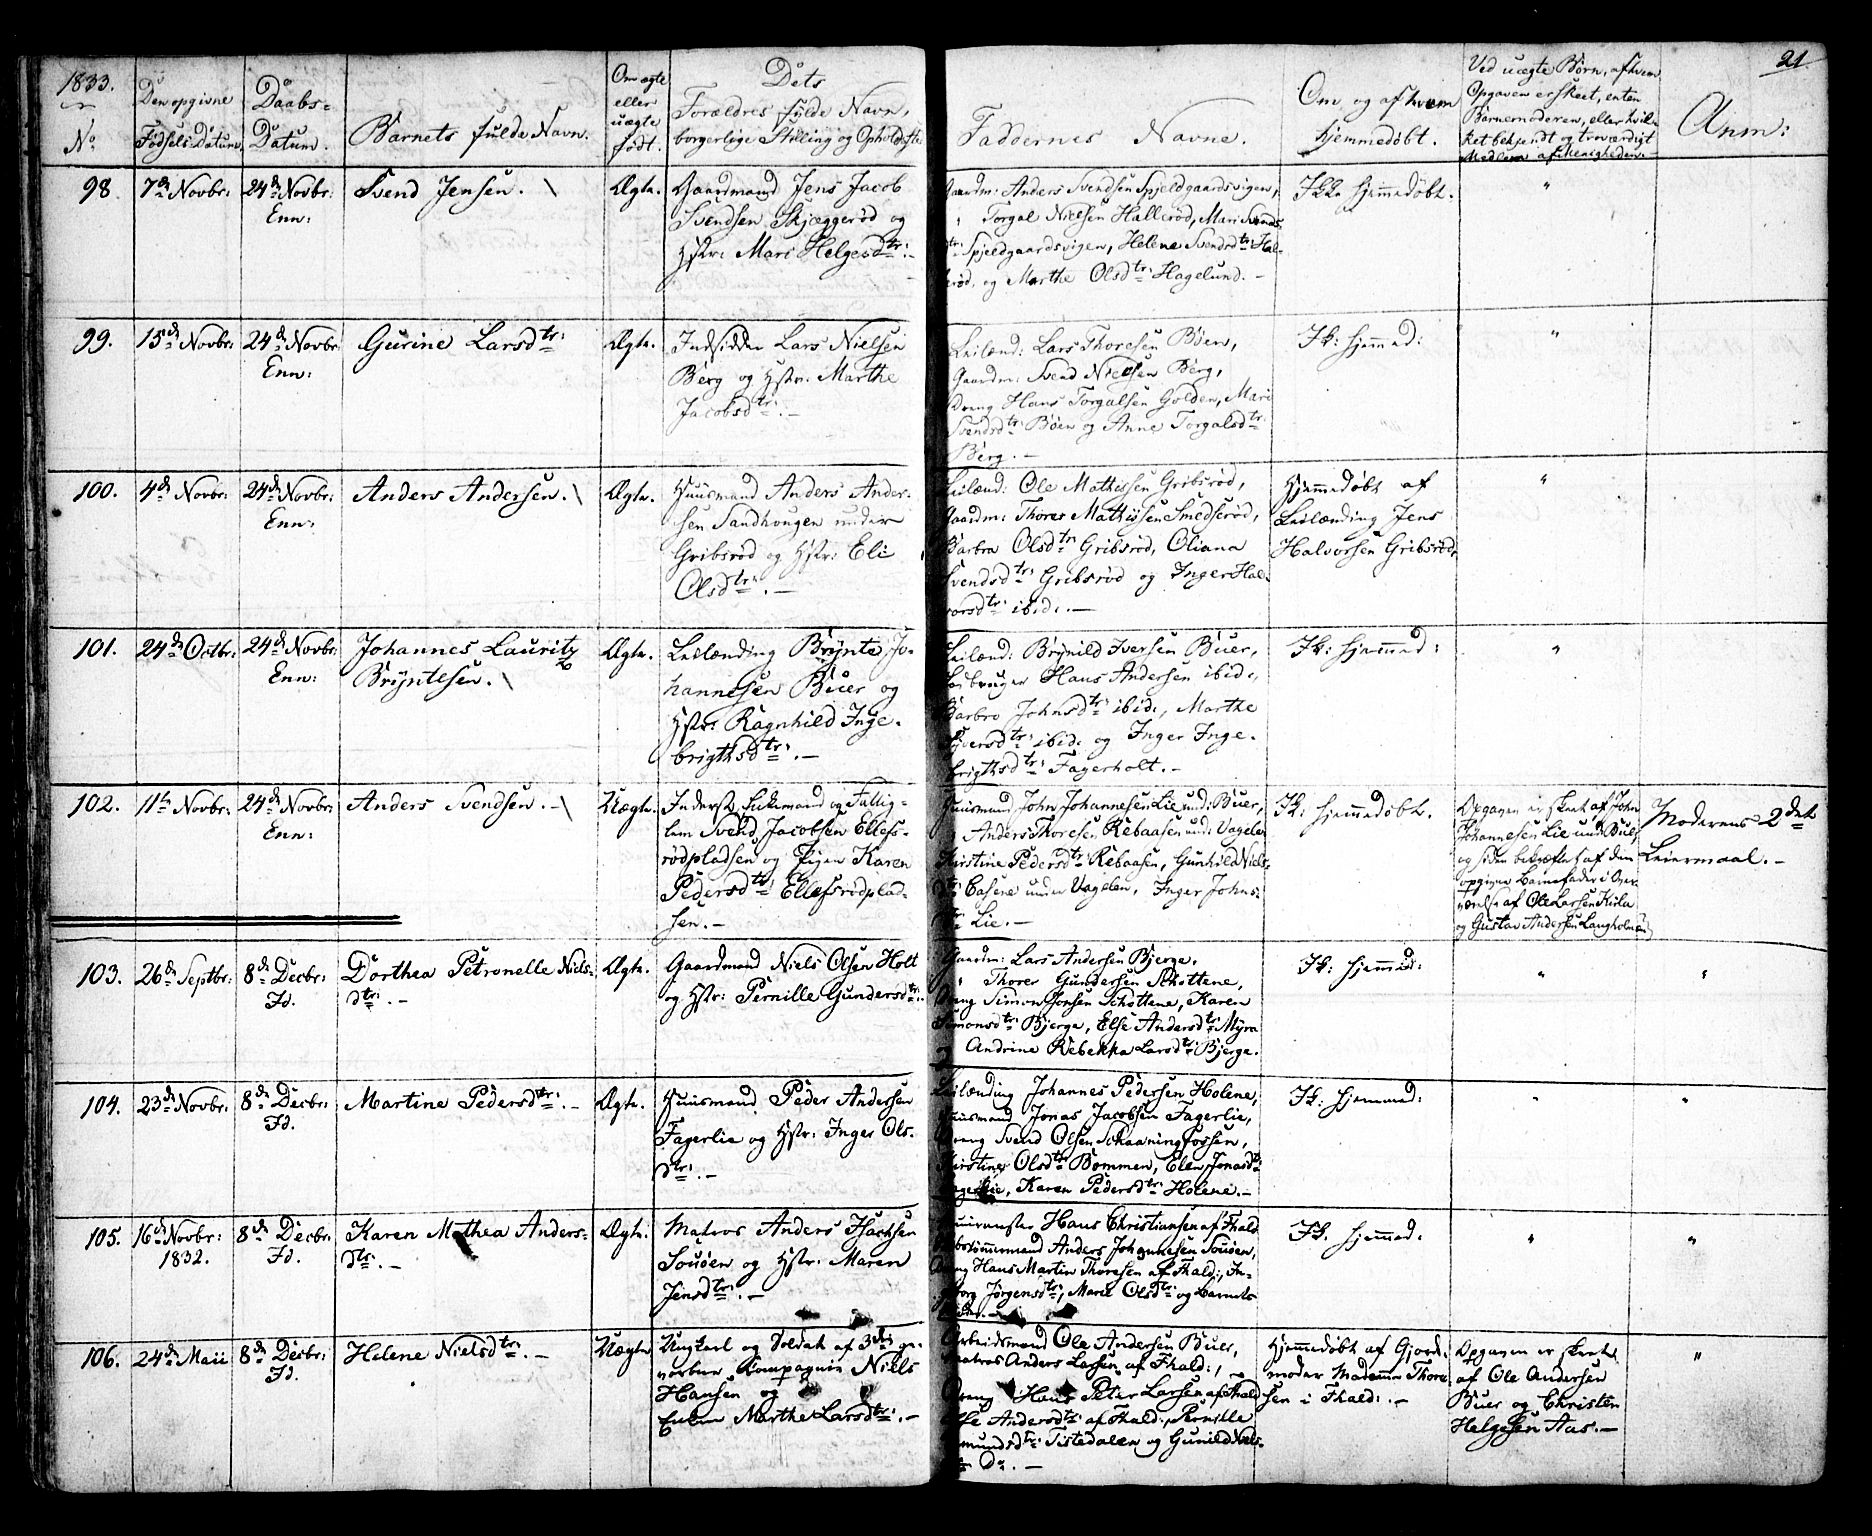 1833.
21.
No
Den opgivne Fødsels-Datum.
Daabs-Datum.
Barnets fulde Navn.
Om ægte eller uægte født.
Dets Forældres fulde Navn, borgerlige Stilling og Opholdsste
Faddernes Navne.
Om og af hvem hjemmedøbt.
Ved uægte Børn, af hvem Opgaven er skeet, enten Barnemoderen, eller hvilket bekjendt og troværdigt Medlem af Menigheden.
Anm:
98.
7de Novbr:
24de Novbr:
Enn:
Svend Jensen.
Ægte.
Gaardmand Jens Jacob
Svendsen Skjæggerød og
Hstr: Mari Helgesdtr: -
Gaardm: Anders Svendsen Spjeldgaardsvigen,
" Torgal Nielsen Hallerød, Mari Svends-
dtr: Spjeldgaardsvigen, Helene Svendsdtr: Hal-
rød, og Marthe Olsdtr: Hagelund. -
Ikke hjemmedøbt.
"
99.
15de Novbr:
24de Novbr:
Enn:
Gurine Larsdtr:
Ægte.
Indsidder Lars Nielsen
Berg og Hstr: Marthe
Jacobsdtr: -
Leilænd: Lars Thoresen Bøen,
Gaardm: Svend Nielsen Berg,
Dreng Hans Torgalsen Golden, Mari
Svendsdtr: Bøen og Anne Torgalsdtr:
Berg. -
Ik: hjemmed:
"
100.
4de Novbr:
24de Novbr:
Enn:
Anders Andersen.
Ægte.
Huusmand Anders Ander-
sen Sandhougen under
Gribsrød og Hstr: Eli
Olsdtr: -
Leilænd: Ole Mathissen Gribsrød,
Gaardm: Thores Mathissen Smedserød,
Barbra Olsdtr: Gribsrød, Oliana
Svendsdtr: Gribsrød og Inger Hal-
vorsdtr: ibid: -
Hjemmedøbt af
Leilænding Jens
Halvorsen Gribsrød.
"
101.
24de Octbr:
24de Novbr:
Enn:
Johannes Lauritz
Bryntesen.
Ægte.
Leilænding Brynte Jo-
hannesen Buer og
Hstr: Ragnhild Inge-
brigthsdtr: -
Leilænd: Brynild Iversen Buer,
Hans Andersen ibid:,
Barbro Johnsdtr: ibid:, Marthe
Iversdtr: ibid: og Inger Inge-
brigthsdtr: Fagerholt. -
Ik: hjemmed:
"
102.
11te Novbr:
24de Novbr:
Enn:
Anders Svendsen. -
Uægte.
Inderst, Enkemand og Fattig-
lem Svend Jacobsen Ellefs-
rødpladsen og Pigen Karen
Pedersdtr: Ellefsrødplad-
sen. -
Huusmand John Johannesen Lie und: Buer,
" Anders Thoresen Rebaasen und: Vagelen
Kirstine Pedersdtr: Rebaasen, Gunhild Niels-
dtr: under Vagelen, Inger Johns-
dtr: Lie. -
Ik: hjemmedøbt.
Opgaven er skeet af John
Johannesen Lie und: Buer,
og siden bekræftet af den
opgivne Barnefader i Over-
værelse af Ole Larsen Kirke
og Gustav Andersen Langholmen
Moderens 2det
Leiermaal. -
103.
26de Septbr:
8de Decbr:
Fd.
Dorthea Petronelle Niels-
dtr: -
Ægte.
Gaardmand Niels Olsen Holt
og Hstr: Pernille Gundersdtr:
Gaardm: Lars Andersen Bjerge,
" Thorer Gundersen Schottene,
Dreng Simon Jonsen Schottene, Karen
Simonsdtr: Bjerge, Else Andersdtr: Myra
og Andrine Rebekka Larsdtr: Bjerge.
Ik: hjemmed:
"
"
104.
23de Novbr:
8de Decbr:
Fd.
Martine Pedersdtr: -
Ægte.
Huusmand Peder Andersen
Fagerlie og Hstr: Inger Ols-
dtr: -
Leilænding Johannes Pedersen Holene,
Huusmand Jonas Jacobsen Fagerlie,
Dreng Svend Olsen Schaaningfossen,
Kirstine Olsdtr: Bommen, Elen Jonasdtr:
Fagerlie, Karen Pedersdtr: Holene. -
Ik: hjemmed:
"
"
105.
16de Novbr:
1832.
8de Decbr:
Fd.
Karen Mathea Anders-
dtr: -
Ægte.
Matros Anders Isachsen
Souøen og Hstr: Maren
Jensdtr: -
Hans Christiansen af Fhald
Anders Johannesen Souøen,
Dreng Hans Martin Thoresen af Fhald:, In-
borg Jørgensdtr:, Marie Olsdtr: og Barnets
Ik. hjemmed:
"
"
106.
24de Maii
8de Decbr:
Fd.
Helene Nielsdtr: -
Uægte
Ungkarl og Soldat af 3die ge-
vorbne Kompagnie Niels
Hansen og
Enken Marthe Larsdtr: -
Arbeidsmand Ole Andersen Buer,
Matros Anders Larsen af Fhald:,
Dreng Hans Peter Larsen af Fhald
Else Andersdtr: af Fhald:, Pernille
Amundsdtr: Tistedalen og Gunild Niels-
dtr: Do. -
Hjemmedøbt af Gjord-
moder Madame Thore-
sen i Fhald: -
Opgaven er skeet
af Ole Andersen
Buer og Christen
Helgesen Aas. -
"